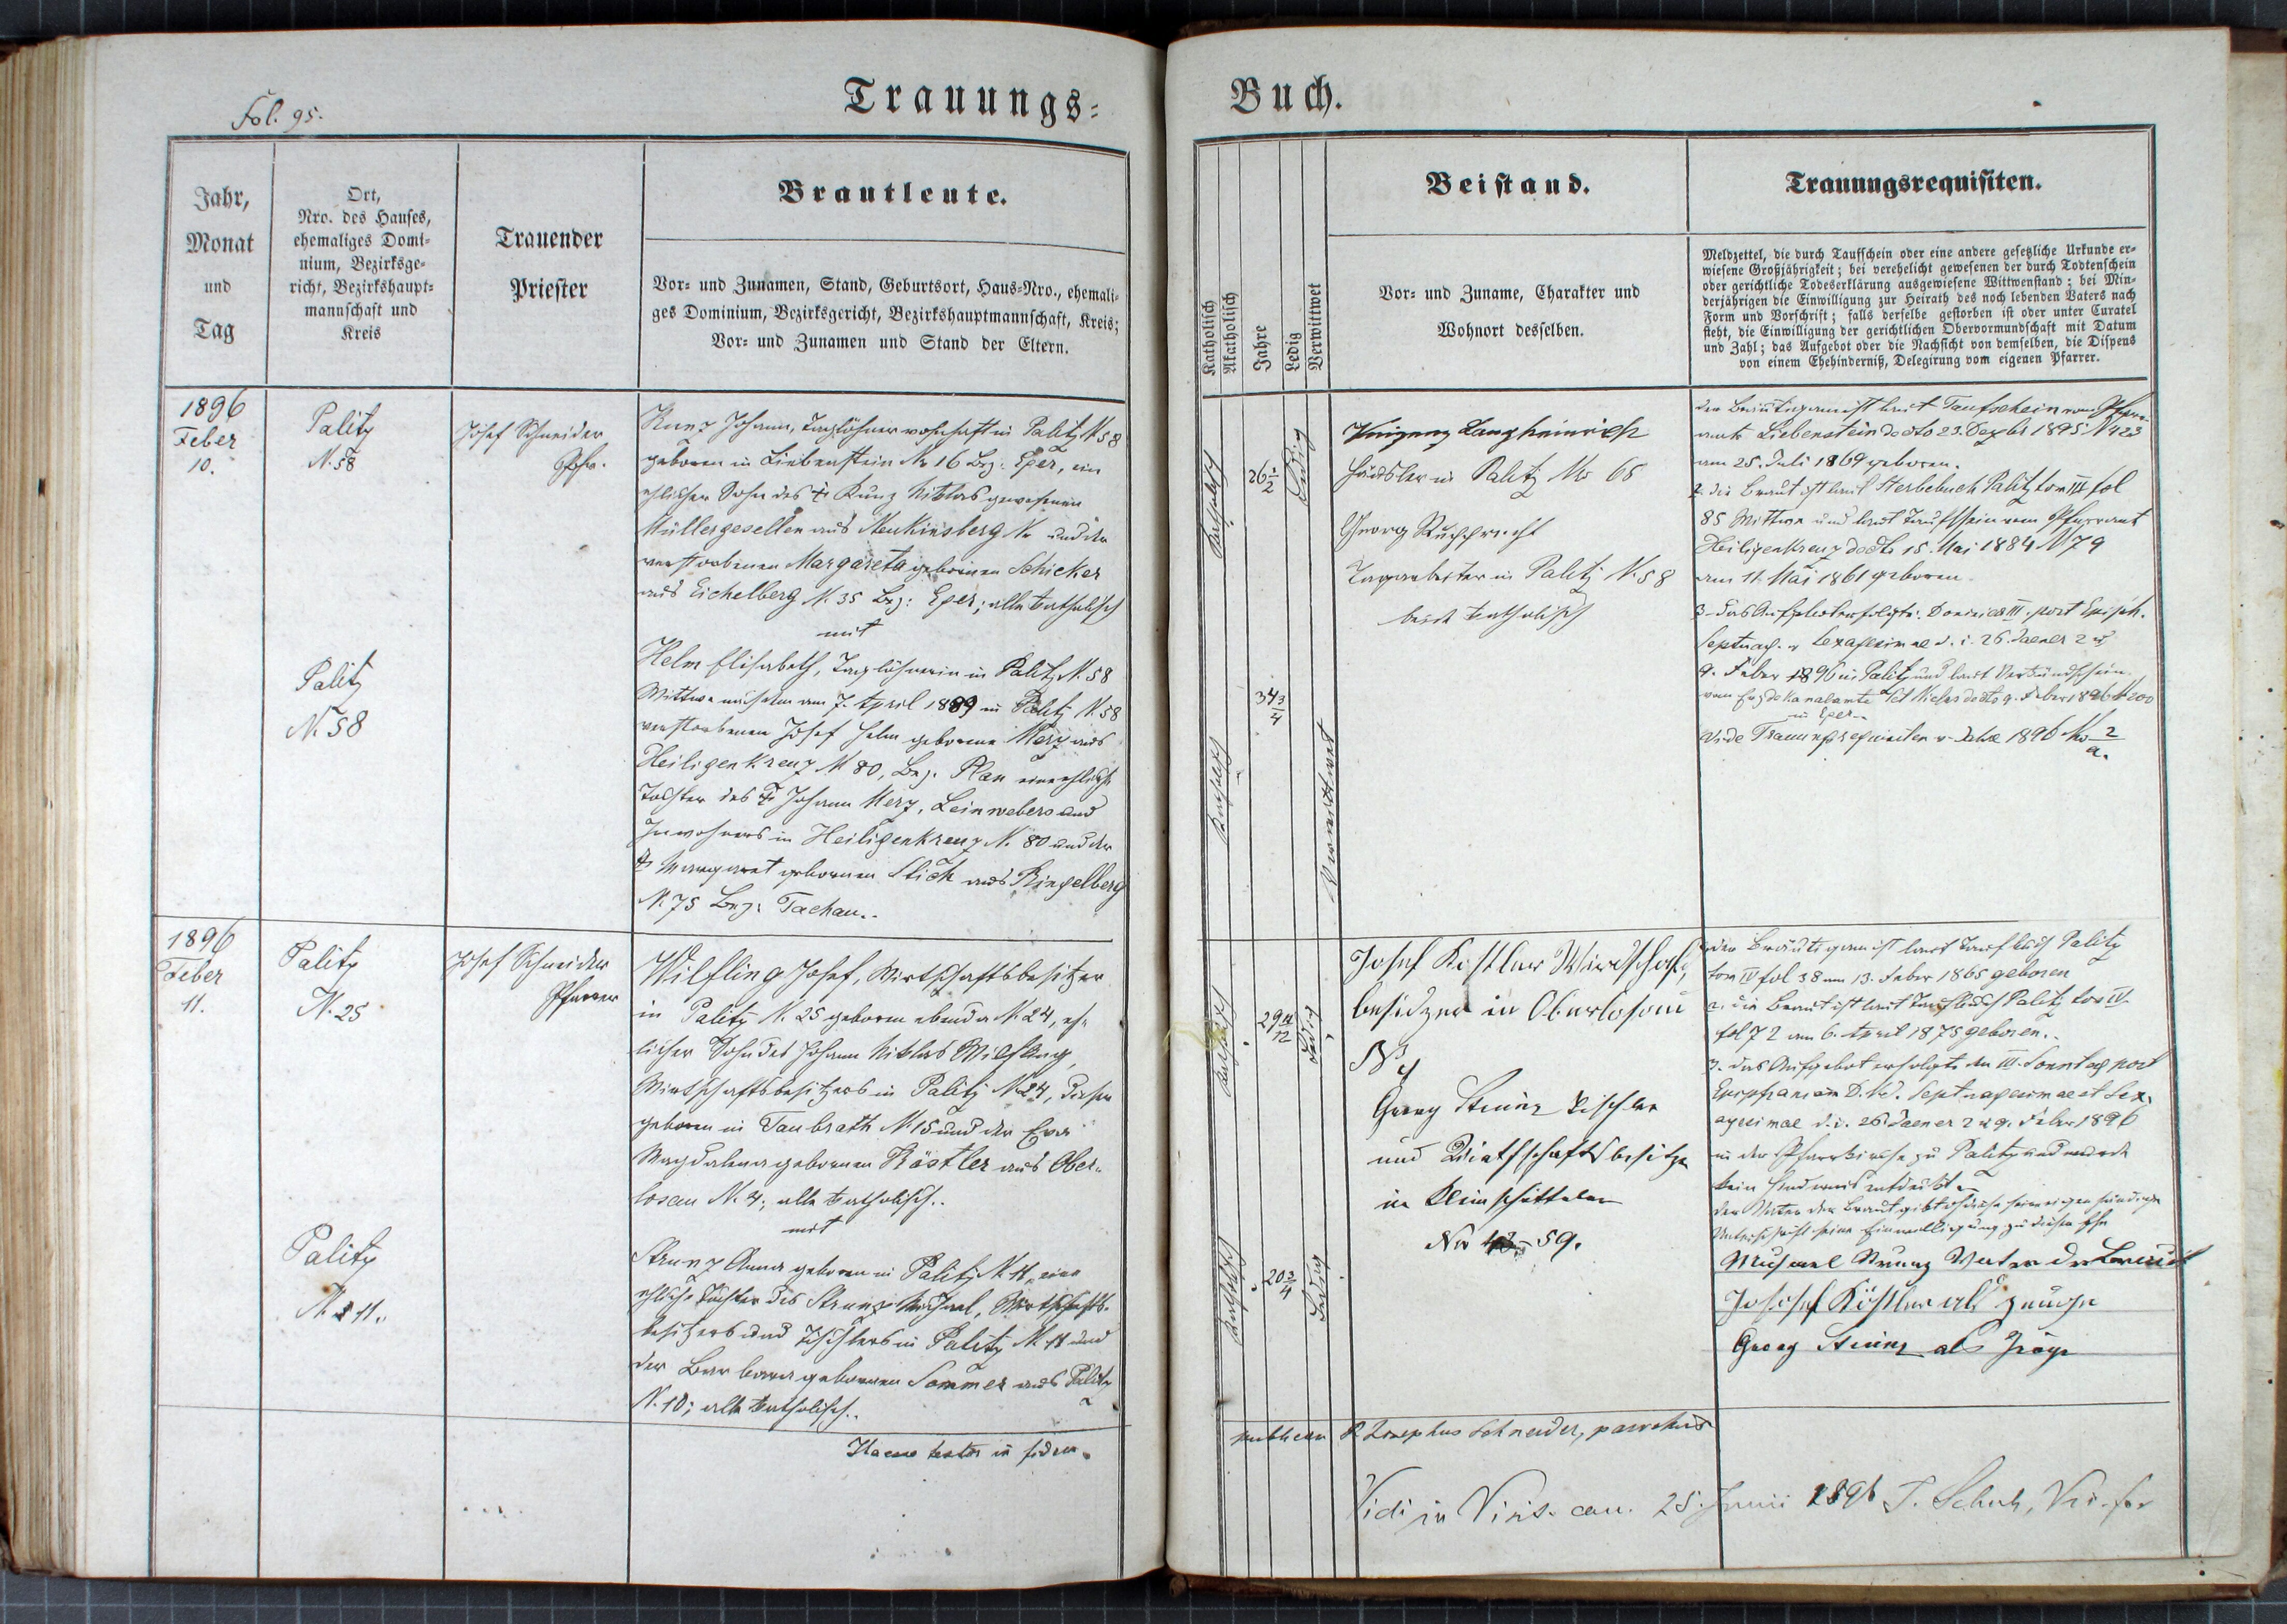 Fol. 95.
Trauungs-
Buch.
Jahr,
Monat
und
Tag
Ort,
Nro. des Hauses,
ehemaliges Domi-
nium, Bezirksge-
richt, Bezirkshaupt-
mannschaft und
Kreis
Trauender
Priester
Brautleute.
Vor- und Zunamen, Stand, Geburtsort, Haus-Nro., ehemali-
ges Dominium, Bezirksgericht, Bezirkshauptmannschaft, Kreis;
Vor- und Zunamen und Stand der Eltern.
Katholisch
Akatholisch
Jahre
Ledig
Verwittwet
Beistand.
Vor- und Zuname, Charakter und
Wohnort desselben.
Trauungsrequisiten.
Meldzettel, die durch Taufschein oder eine andere gesetzliche Urkunde er-
wiesene Großjährigkeit; bei verehelicht gewesenen der durch Todtenschein
oder gerichtliche Todeserklärung ausgewiesene Wittwenstand; bei Min-
derjährigen die Einwilligung zur Heirath des noch lebenden Vaters nach
Form und Vorschrift; falls derselbe gestorben ist oder unter Curatel
steht, die Einwilligung der gerichtlichen Obervormundschaft mit Datum
und Zahl; das Aufgebot oder die Nachsicht von demselben, die Dispens
von einem Ehehinderniß, Delegirung vom eigenen Pfarrer.
1896
Feber
10.
Palitz
N. 58
Josef Schneider
Pfr.
Kunz Johann, Taglöhner wohnhaft in Palitz N 58
geboren in Liebenstein Nr 16 Bez: Eger, ein
ehlicher Sohn des † Kunz Niklas gewesenen
Müllergesellen aus Neukinsberg N und der
verstorbenen Margareta gebornen Schicker
aus Eichelberg N. 35 Bez: Eger; alle katholisch
mit
Palitz
N. 58
Helm Elisabeth, Taglöhnerin in Palitz N. 58
Wittwe nach dem am 7. April 1889 in Palitz N. 58
verstorbenen Josef Helm geborene Merz aus
Heiligenkreuz N 80, Bez. Plan eine ehliche
Tochter des † Johann Merz, Leinwebers und
Inwohners in Heiligenkreuz N. 80 und der
† Margaret gebornen Stich aus Ringelberg
N. 75 Bez: Tachau.
Katholisch
26 1/2
Ledig
Katholisch
34 3/4
Verwittwet
Langheinrich
Häusler in Palitz No 65
Georg Rupprecht
Tagarbeiter in Palitz N. 58
beide katholisch
der Bräutigam ist laut Taufschein vom Pfarr-
amte Liebenstein ddto 23. Dezbr 1895 N 423
am 25. Juli 1869 geboren.
2. die Braut ist laut Sterbebuch Palitz tom III fol
85 Wittwe und laut Taufschein vom Pfarramt
Heiligenkreuz ddto 15. Mai 1884 N 79
am 11. Mai 1861 geboren.
3. das Aufgebot erfolgte Dominica III. post Epiph.
Septuag. u Sexagesimae d. i. 26. Jaener 2 u
9. Feber 1896 in Palitz und laut Verkündschein
in Eger
vide Trauungsrequisiten v. Jahre 1896 No 2/a.
1896
Feber
11.
Palitz
N. 25
Josef Schneider
Pfarrer
Wilfling Josef, Wirtschaftsbesitzer
in Palitz N. 25 geboren ebenda N. 24, eh-
licher Sohn des Johann Niklas Wilfling,
Wirtschaftsbesitzers in Palitz N 24, dieser
geboren in Taubrath N 15 und der Eva
Magdalena gebornen Köstler aus Ober-
losau N. 4; alle katholisch.
mit
Palitz
N. 11.
Strunz Anna geboren in Palitz N. 11, eine
ehliche Tochter des Strunz Michael, Wirtschafts-
besitzers und Tischlers in Palitz N. 11 und
der Barbara gebornen Sommer aus Palitz
N. 10; alle katholisch.
Katholisch
29 11/12
Ledig
Katholisch
20 3/4
Ledig
Josef Köstler Wirdschafts
besidzer in Oberlosau
N 4
Georg Strunz Tischler
und Wirthschaftsbesitzer
in Kleinschüttüber
No 59.
der Bräutigam ist laut Taufbuch Palitz
tom IV fol 38 am 13. Feber 1866 geboren
2. die Braut ist laut Taufbuch Palitz tom IV.
fol 72 am 6. April 1875 geboren.
3. das Aufgebot erfolgte am III. Sonntag post
Epiphaniam Septuagesimae et Sex-
agesimae d. i. 26. Jaener 2 u 9. Feber 1896
in der Pfarrkirche zu Palitz und wurde
kein Hindernis entdeckt
der Vater der Braut gibt durch seine eigenhändige
Unterschrift seine Einwilligung zu dieser Ehe
Michael Strunz Vater der Braut
Josef Köstler als Zeuge
Georg Strunz als Zeuge
Haec testor in fidem
publicam P. Josephus Schneider, parochus
Vidi in Visit. can. 25. Junii 1896 J. Schuh, Vic. for